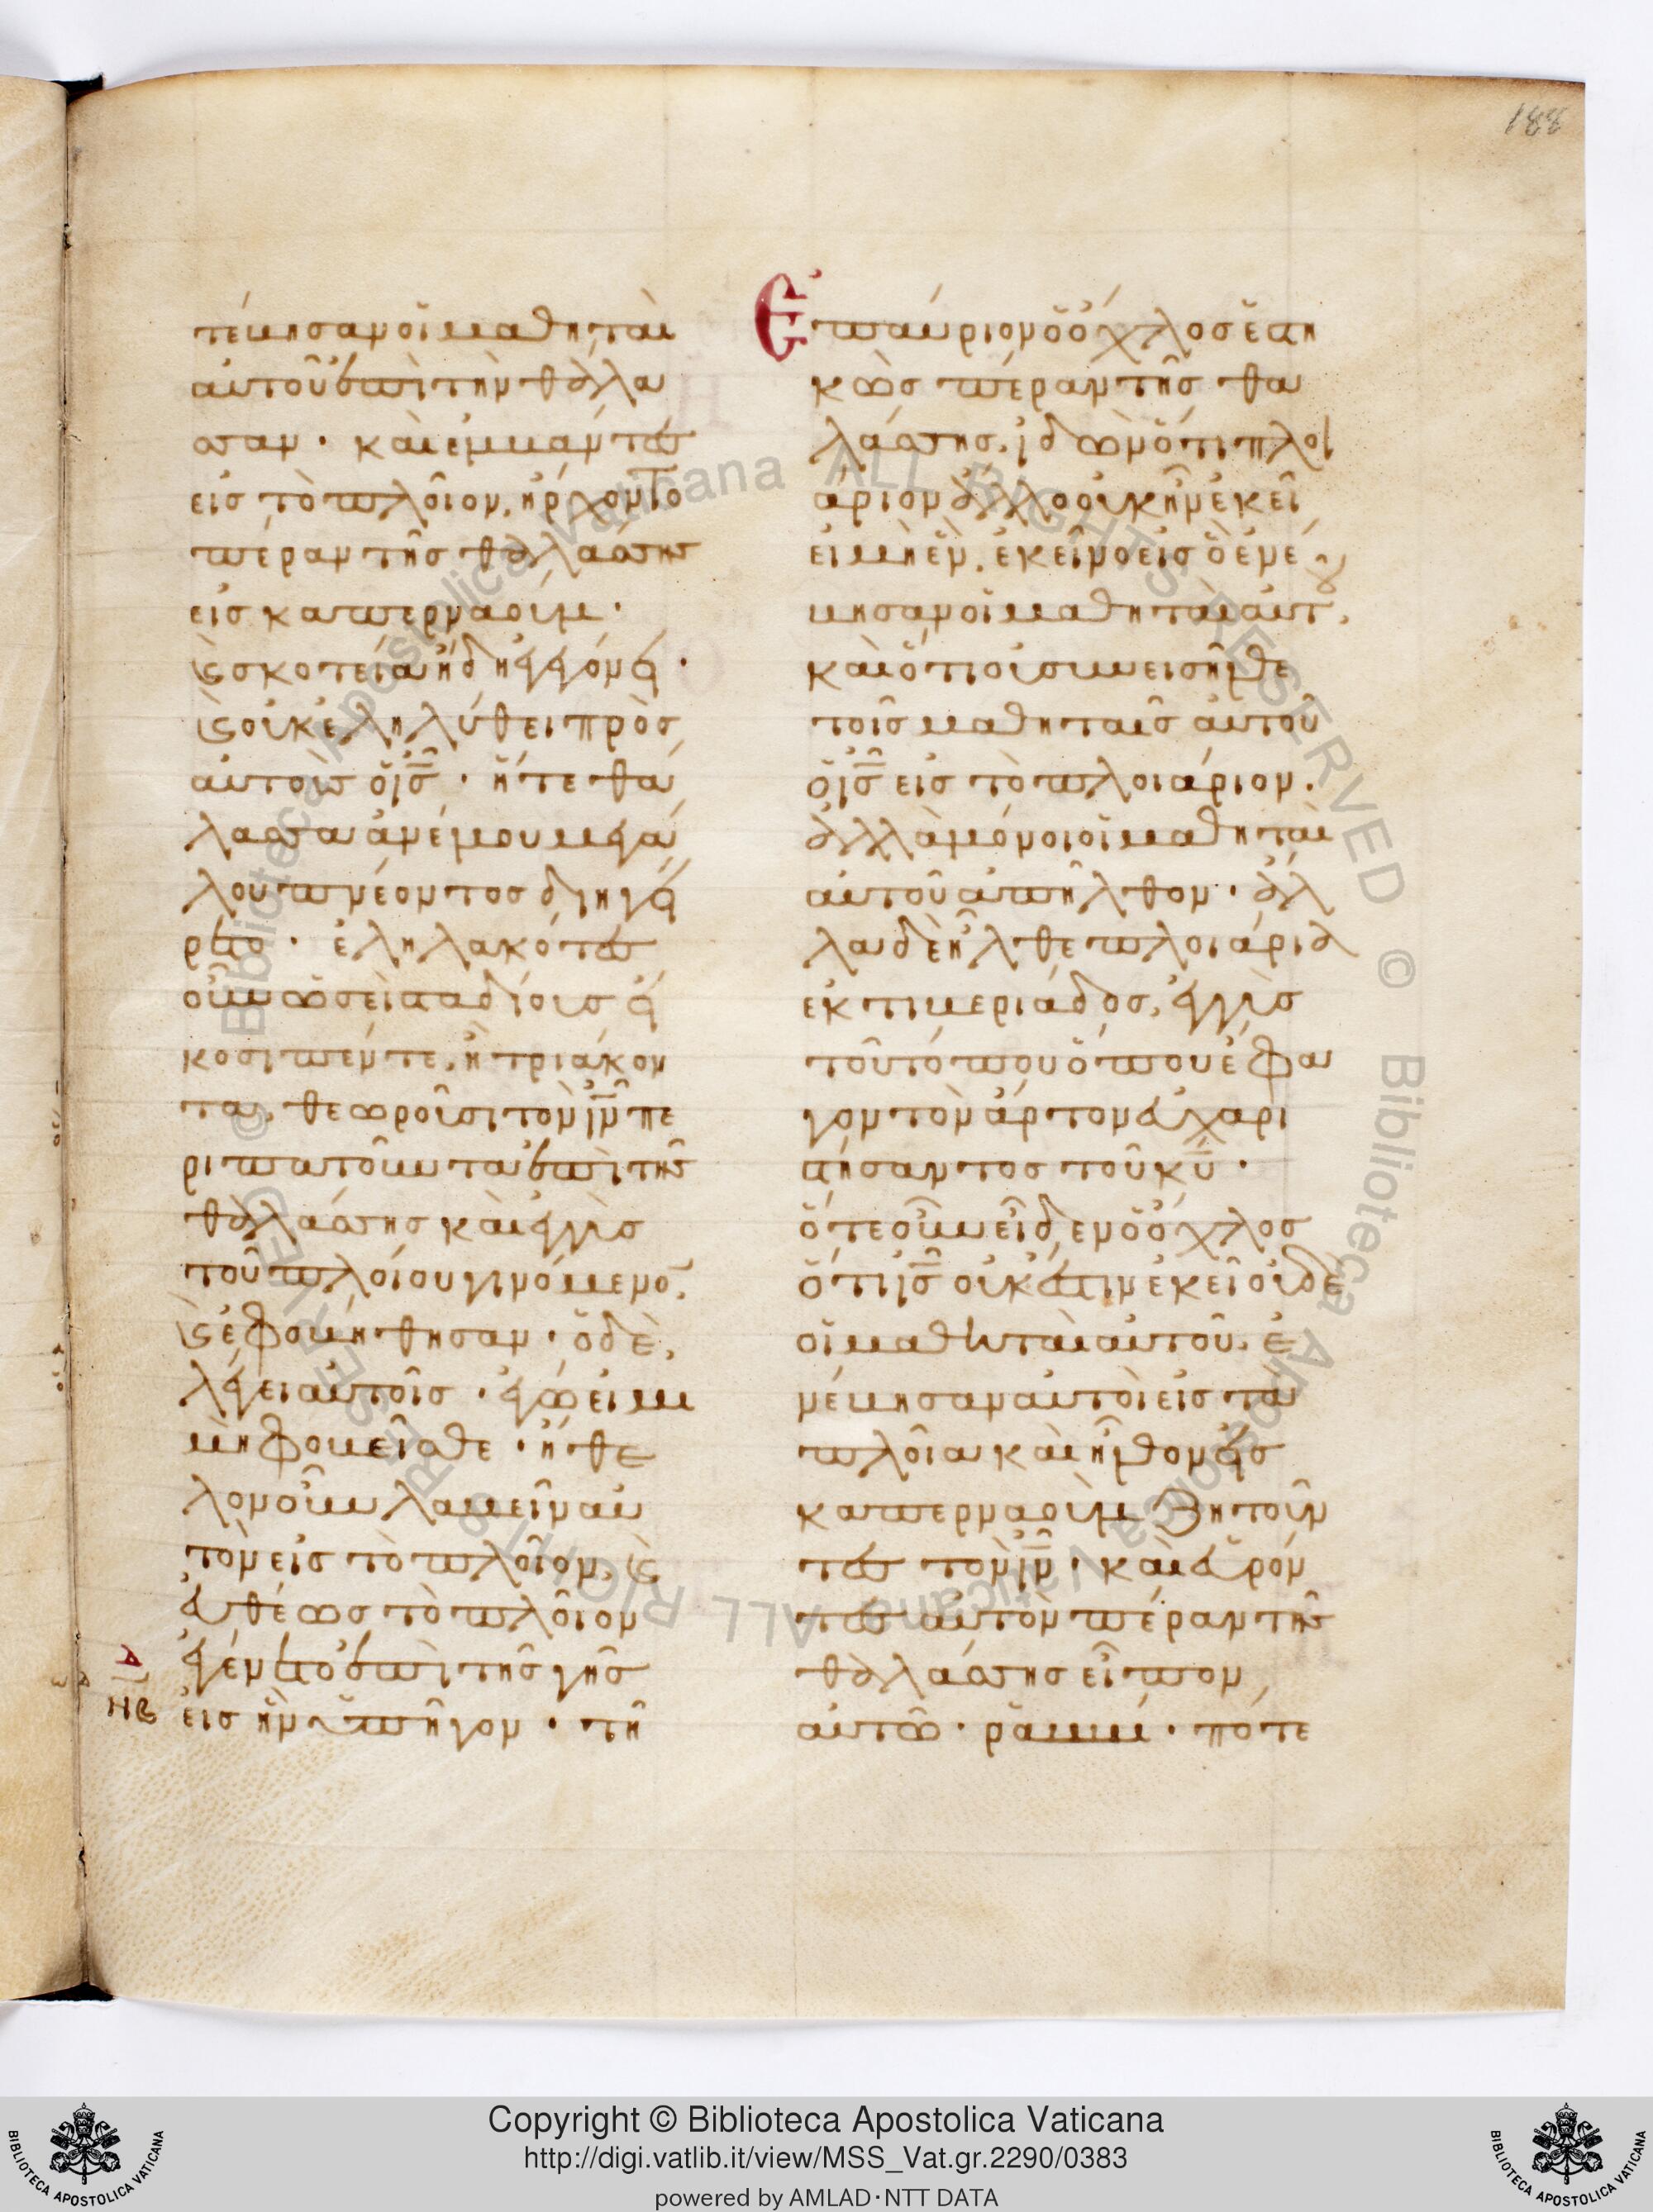 188
τέβησαν οἱ μαθηταὶ
αὐτοῦ ἐπὶ τὴν θάλα
σσαν · καὶ ἐμβάντες
εἰς τὸ πλοῖον, ἤρχοντο
πέραν τῆς θαλάσσης
εἰς καπερναούμ ·
ϗ σκοτεία ἤδη ἐγεγόνει ·
ϗ οὐκ ἐληλύθει πρὸς
αὐτοὺς ὁ ἰς̅ · ἥ τε θά
λασσα ἀνέμου μεγά
λου πνέοντος διηγεί
ρετο · ἐληλακότες
οὖν ὡσεὶ σταδίους εἴ
κοσι πέντε, ἢ τριάκον
τα, θεωροῦσι τὸν ἰν̅ πε
ριπατοῦντα ἐπὶ τῆς
θαλάσσης καὶ ἐγγὺς
τοῦ πλοίου γινόμενον,
ϗ ἐφοβήθησαν · ὁ δὲ,
λέγει αὐτοῖς · ἐγώ εἰμι
μὴ φοβεῖσθε · ἤθε
λον οὖν λαβεῖν αὐ
τὸν εἰς τὸ πλοῖον, ϗ
εὐθέως τὸ πλοῖον
ἐγένετο ἐπὶ τῆς γῆς
εἰς ἣν ὑπῆγον · τῇ
Ἐπαύριον ὁ ὄχλος ὁ ἑστη
κὼς πέραν τῆς θα
λάσσης, ἰδὼν ὅτι πλοι
άριον ἄλλο οὐκ ἦν ἐκεῖ
εἰ μὴ ἓν, ἐκεῖνο εἰς ὃ ἐνέ
βησαν οἱ μαθηταὶ αὐτοῦ,
καὶ ὅτι οὐ συνεισῆλθε
τοῖς μαθηταῖς αὐτοῦ
ὁ ἰς̅ εἰς τὸ πλοιάριον ·
ἀλλὰ μόνοι οἱ μαθηταὶ
αὐτοῦ ἀπῆλθον · ἀλ
λα δὲ ἦλθε πλοιάρια
ἐκ τιβεριάδος, ἐγγὺς
τοῦ τόπου ὅπου ἔφα
γον τὸν ἄρτον εὐχαρι
στήσαντος τοῦ κυ̅ ·
ὅτε οὖν εἶδεν ὁ ὄχλος
ὅτι ἰς̅ οὐκ ἔστιν ἐκεῖ οὐδὲ
οἱ μαθηταὶ αὐτοῦ, ἐ
νέβησαν αὐτοὶ εἰς τὰ
πλοῖα καὶ ἦλθον εἰς
καπερναοὺμ ζητοῦν
τες τὸν ἰν̅ · καὶ εὑρόν
τες αὐτὸν πέραν τῆς
θαλάσσης εἶπον
αὐτῷ · ῥαββί · πότε
Copyright © Biblioteca Apostolica Vaticana
http://digi.vatlib.it/view/MSS_Vat.gr.2290/0383
powered by AMLAD·NTT DATA